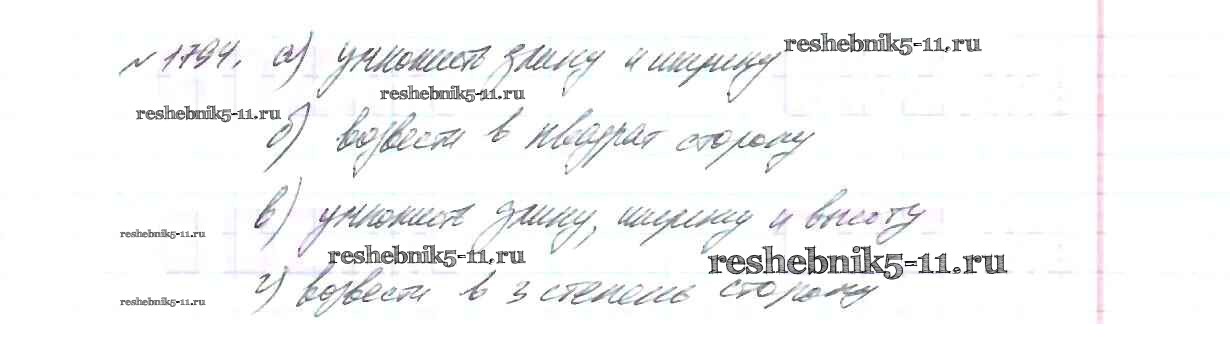 №1794. а) умножить длину и ширину reshebnik5-11.ru
reshebnik5-11.ru reshebnik5-11.ru
б) возвести в квадрат сторону
в) умножить длину, ширину и высоту
reshebnik5-11.ru
reshebnik5-11.ru reshebnik5-11.ru
г) возвести в 3 степень сторону
reshebnik5-11.ru